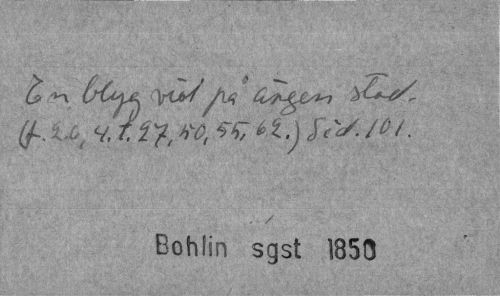 En blyg viol på ängen stod.
(f. 26, 4. f. 27, 50, 55, 62.) Sid. 101.
Bohlin sgst 1850